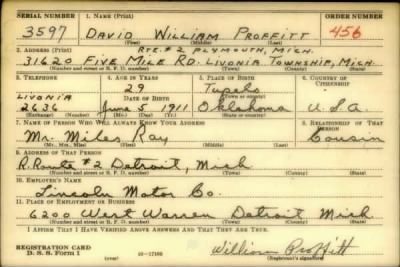 SERIAL NUMBER 1. NAME (Print) ORDER NUMBER
3597 DAVID WILLIAM PROFFITT 456
(First) (Middle) (Last)
RTE. #2 PLYMOUTH, MICH.
2. ADDRESS (Print)
31620 FIVE MILE RD. LIVONIA TOWNSHIP, MICH.
(Number and street or R. F. D. number) (Town) (County) (State)
3. TELEPHONE 4. AGE IN YEARS 5. PLACE OF BIRTH 6. COUNTRY OF CITIZENSHIP
29 Tupelo
LIVONIA DATE OF BIRTH (Town or county)
2636 June 5, 1911 Oklahoma U.S.A.
(Exchange) (Number) (Mo.) (Day) (Yr.) (State or country)
7. NAME OF PERSON WHO WILL ALWAYS KNOW YOUR ADDRESS 8. RELATIONSHIP OF THAT PERSON
Mr. Miles, Roy Cousin
(Mr., Mrs., Miss) (First) (Middle) (Last)
9. ADDRESS OF THAT PERSON
R. Route #2 Detroit, Mich
(Number and street or R. F. D. number) (Town) (County) (State)
10. EMPLOYER'S NAME
Lincoln Motor Co.
11. PLACE OF EMPLOYMENT OR BUSINESS
6200 West Warren Detroit Mich
(Number and street or R. F. D. number) (Town) (County) (State)
I AFFIRM THAT I HAVE VERIFIED ABOVE ANSWERS AND THAT THEY ARE TRUE.
REGISTRATION CARD
D. S. S. Form 1 William Proffitt
(over) (Registrant's signature)